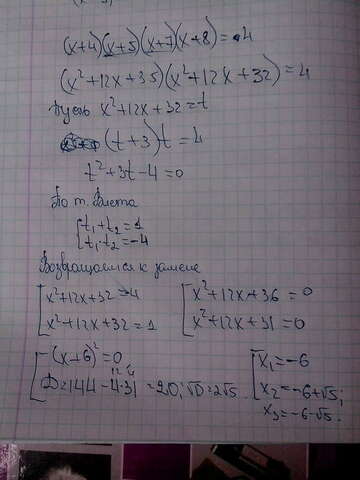 (x+4)(x+5)(x+7)(x+8)=4
(x²+12x+35)(x²+12x+32)=4
Пусть x²+12x+32=t
(t+3)t=4
t²+3t-4=0
По т. Виета
t₁+t₂=1
t₁·t₂=-4
Возвращаемся к замене
x²+12x+32=-4 x²+12x+36=0
x²+12x+32=1 x²+12x+31=0
(x+6)²=0 x₁=-6
D=144-4·31=20; √D=2√5. x₂=-6+√5;
x₃=-6-√5.